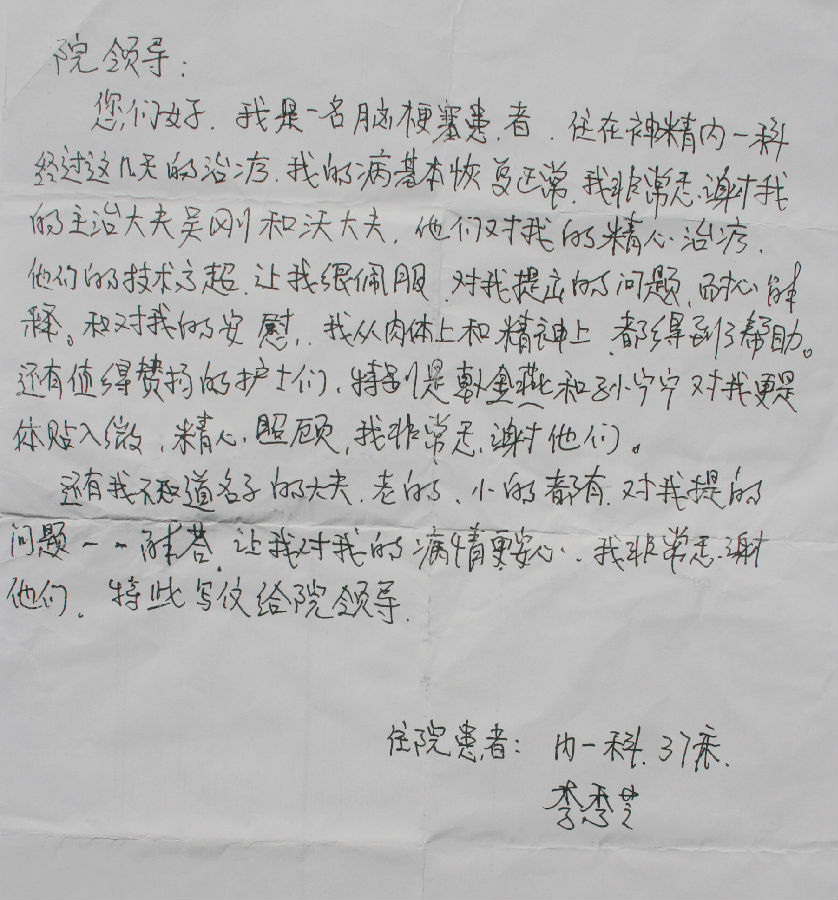 院领导:
您们好. 我是一名脑梗塞患者. 住在神精内一科
经过这几天的治疗. 我的病基本恢复正常. 我非常感谢我
的主治大夫吴刚和沃大夫, 他们对我的精心治疗.
他们的技术高超. 让我很佩服. 对我提出的问题, 耐心解
释。和对我的安慰, 我从肉体上和精神上, 都得到了帮助。
还有值得赞扬的护士们, 特别是 金燕和孙宁宁对我更是
体贴入微, 精心照顾, 我非常感谢他们。
还有我不知道名子的大夫. 老的、小的都有. 对我提的
问题一一解答, 让我对我的病情更安心. 我非常感谢
他们. 特此写仪给院领导.
住院患者: 内一科. 37床.
李秀芝